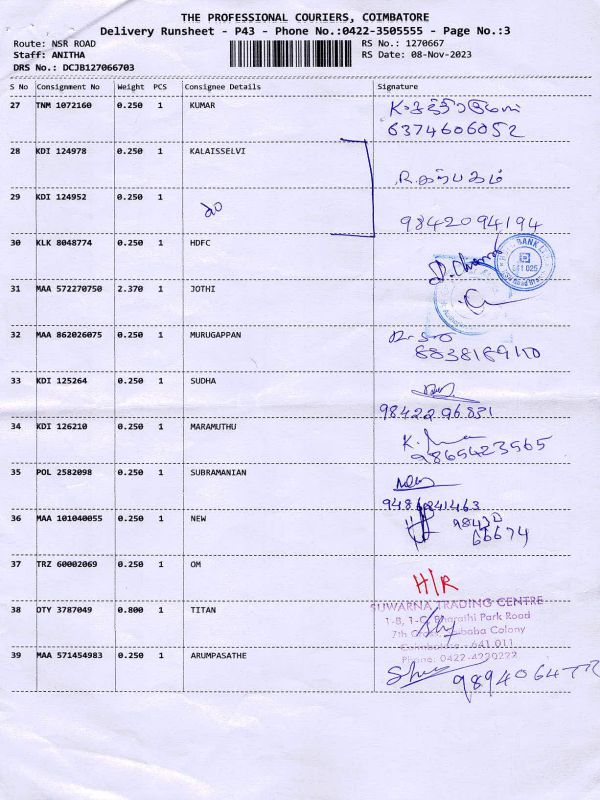 THE PROFESSIONAL COURIERS, COIMBATORE
Delivery Runsheet - P43 - Phone No.:0422-3505555 - Page No.:3
Route: NSR ROAD RS No.: 1270667
Staff: ANITHA RS Date: 08-Nov-2023
DRS No.: DCJB127066703
S No Consignment No Weight PCS Consignee Details Signature
27 TNM 1072160 0.250 1 KUMAR
6374606052
28 KDI 124978 0.250 1 KALAISSELVI
R.கற்பகம்
29 KDI 124952 0.250 1
9842094194
30 KLK 8048774 0.250 1 HDFC
BANK
641 025
31 MAA 572270750 2.370 1 JOTHI
32 MAA 862026075 0.250 1 MURUGAPPAN
33 KDI 125264 0.250 1 SUDHA
98422 96831
34 KDI 126210 0.250 1 MARAMUTHU
9865423565
35 POL 2582098 0.250 1 SUBRAMANIAN
9486241463
36 MAA 101040055 0.250 1 NEW
66674
37 TRZ 60002069 0.250 1 OM
H/R
SUWARNA TRADING CENTRE
38 OTY 3787049 0.800 1 TITAN
1-B, 1-C, Bharathi Park Road
7th Cross, Saibaba Colony
Coimbatore - 641 011
Phone: 0422-4220222
39 MAA 571454983 0.250 1 ARUMPASATHE